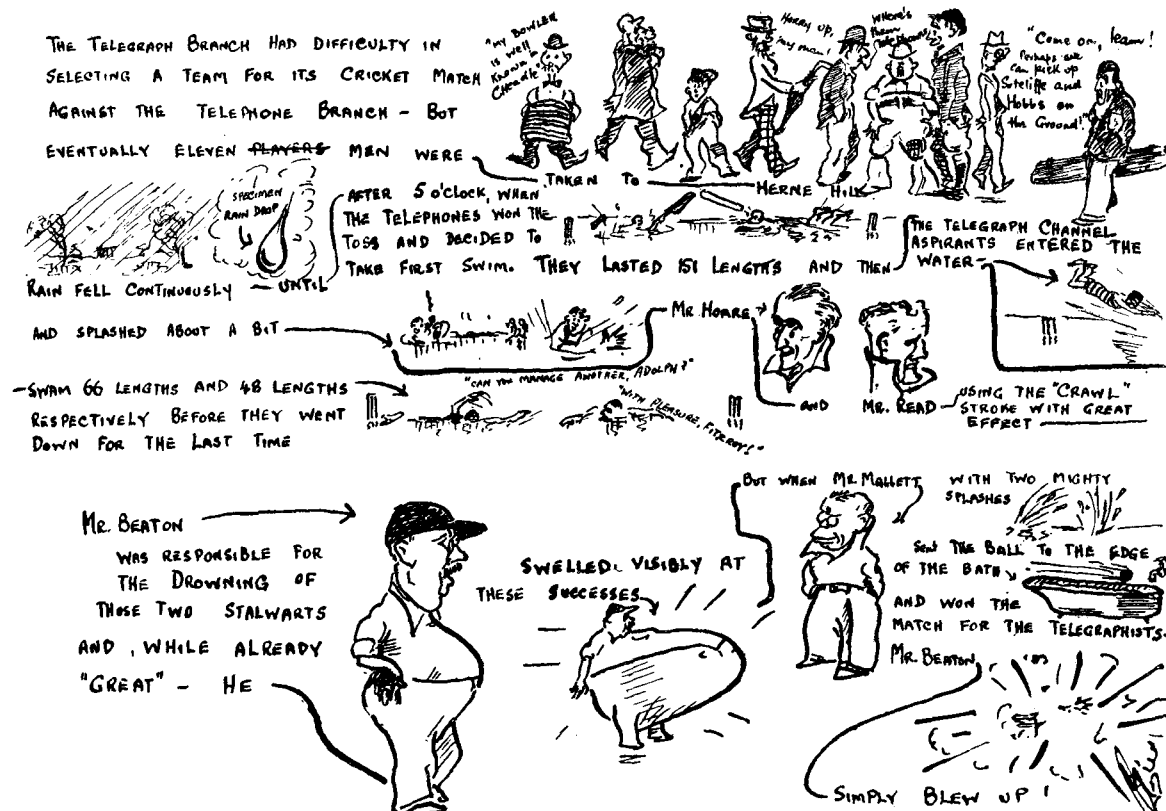 THE TELEGRAPH BRANCH HAD DIFFICULTY IN
SELECTING A TEAM FOR ITS CRICKET MATCH
AGAINST THE TELEPHONE BRANCH – BUT
EVENTUALLY ELEVEN PLAYERS MEN WERE
"MY BOWLER
IS WELL
KNOWN IN
CHEADLE"
HURRY UP,
my man!
WHERE'S
THEM
"Come on, team!
Perhaps we
can pick up
Sutcliffe and
Hobbs on
the Ground!"
TAKEN TO
HERNE HILL
SPECIMEN
RAIN DROP
RAIN FELL CONTINUOUSLY – UNTIL
AFTER 5 o'CLOCK, WHEN
THE TELEPHONES WON THE
TOSS AND DECIDED TO
TAKE FIRST SWIM. THEY LASTED 151 LENGTHS AND THEN
THE TELEGRAPH CHANNEL
ASPIRANTS ENTERED THE
WATER –
AND SPLASHED ABOUT A BIT
MR HOARE
AND
MR. READ
USING THE "CRAWL"
STROKE WITH GREAT
EFFECT
– SWAM 66 LENGTHS AND 48 LENGTHS
RESPECTIVELY BEFORE THEY WENT
DOWN FOR THE LAST TIME
"CAN YOU MANAGE ANOTHER, ADOLPH?"
"WITH PLEASURE, FITZROY!"
MR. BEATON
WAS RESPONSIBLE FOR
THE DROWNING OF
THOSE TWO STALWARTS
AND, WHILE ALREADY
"GREAT" – HE
SWELLED VISIBLY AT
THESE SUCCESSES
BUT WHEN MR. MALLETT
WITH TWO MIGHTY
SPLASHES
SENT THE BALL TO THE EDGE
OF THE BATH
AND WON THE
MATCH FOR THE TELEGRAPHISTS.
MR. BEATON
SIMPLY BLEW UP!